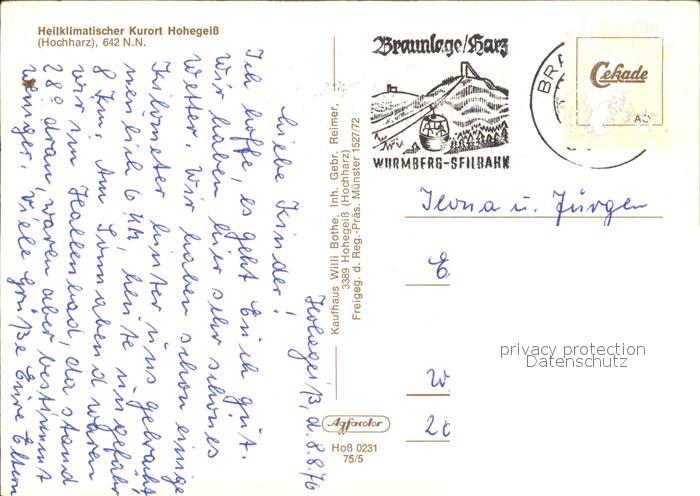 Heilklimatischer Kurort Hohegeiß
(Hochharz), 642 N.N.
Hohegeiß, d. 8.8.76
Liebe Kinder!
Ich hoffe, es geht Euch gut.
Wir haben hier sehr schönes
Wetter. Wir haben schon einige
Kilometer hinter uns gebracht,
nämlich 6 heute ungefähr
8 Km. Am Sonnabend waren
wir im Hallenbad, da stand
28° dran, waren aber bestimmt
weniger. Viele Grüße Eure Eltern
Kaufhaus Willi Bothe, Inh. Gebr. Reimer,
3389 Hohegeiß (Hochharz)
Freigeg. d. Reg.-Präs. Münster 1527/72
Agfacolor
Hoß 0231
75/5
Braunlage/Harz
WURMBERG-SEILBAHN
BRA
Cekade
Ilona u. Jürgen
E
W.
20
privacy protection
Datenschutz